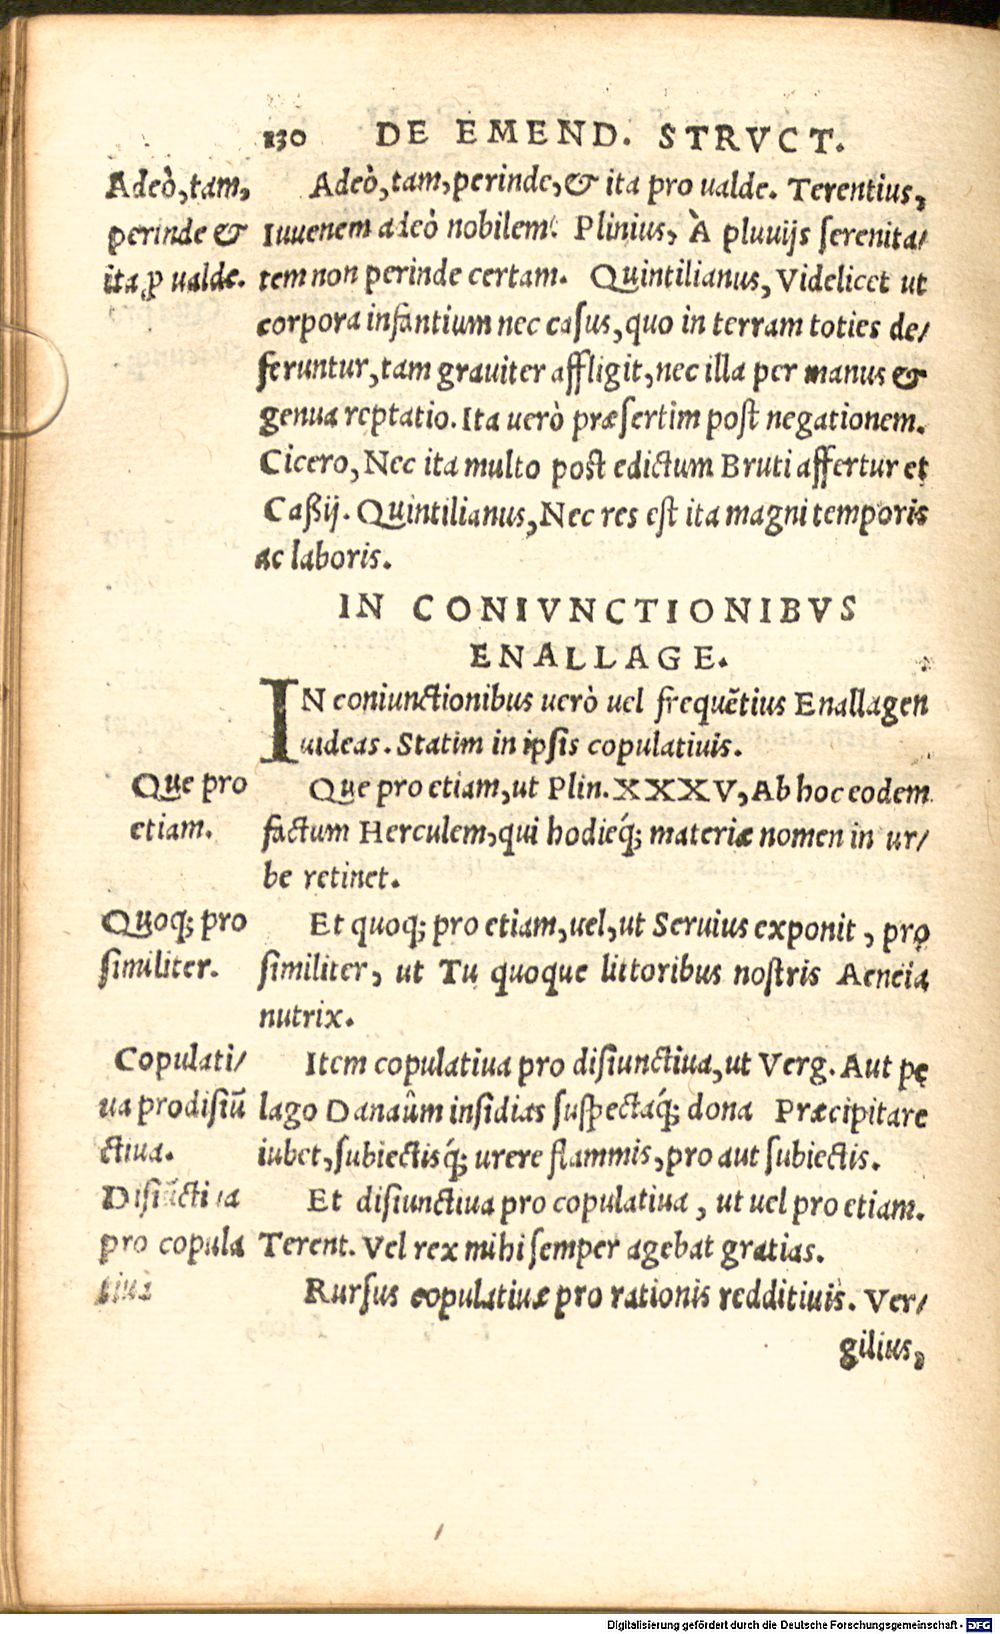 130 DE EMEND. STRVCT.
Adeò, tam,
perinde &
ita ꝓ ualde.
Adeò, tam, perinde, & ita pro ualde. Terentius,
Iuuenem adeò nobilem. Plinius, À pluuijs serenita/
tem non perinde certam. Quintilianus, Videlicet ut
corpora infantium nec casus, quo in terram toties de/
feruntur, tam grauiter affligit, nec illa per manus &
genua reptatio. Ita uerò præsertim post negationem.
Cicero, Nec ita multo post edictum Bruti affertur et
Caßij. Quintilianus, Nec res est ita magni temporis
ac laboris.
IN CONIVNCTIONIBVS
ENALLAGE.
IN coniunctionibus uerò uel frequẽtius Enallagen
uideas. Statim in ipsis copulatiuis.
Que pro
etiam.
Que pro etiam, ut Plin. XXXV, Ab hoc eodem
factum Herculem, qui hodieq́; materiæ nomen in ur/
be retinet.
Quoq; pro
similiter.
Et quoq; pro etiam, uel, ut Seruius exponit, pro
similiter, ut Tu quoque littoribus nostris Aeneia
nutrix.
Copulati/
ua pro disiũ
ctiua.
Item copulatiua pro disiunctiua, ut Verg. Aut pe
lago Danaûm insidias suspectaq́; dona Præcipitare
iubet, subiectisq́; urere flammis, pro aut subiectis.
Disiũctiua
pro copula
tiua
Et disiunctiua pro copulatiua, ut uel pro etiam.
Terent. Vel rex mihi semper agebat gratias.
Rursus copulatiuæ pro rationis redditiuis. Ver/
gilius,
Digitalisierung gefördert durch die Deutsche Forschungsgemeinschaft - DFG